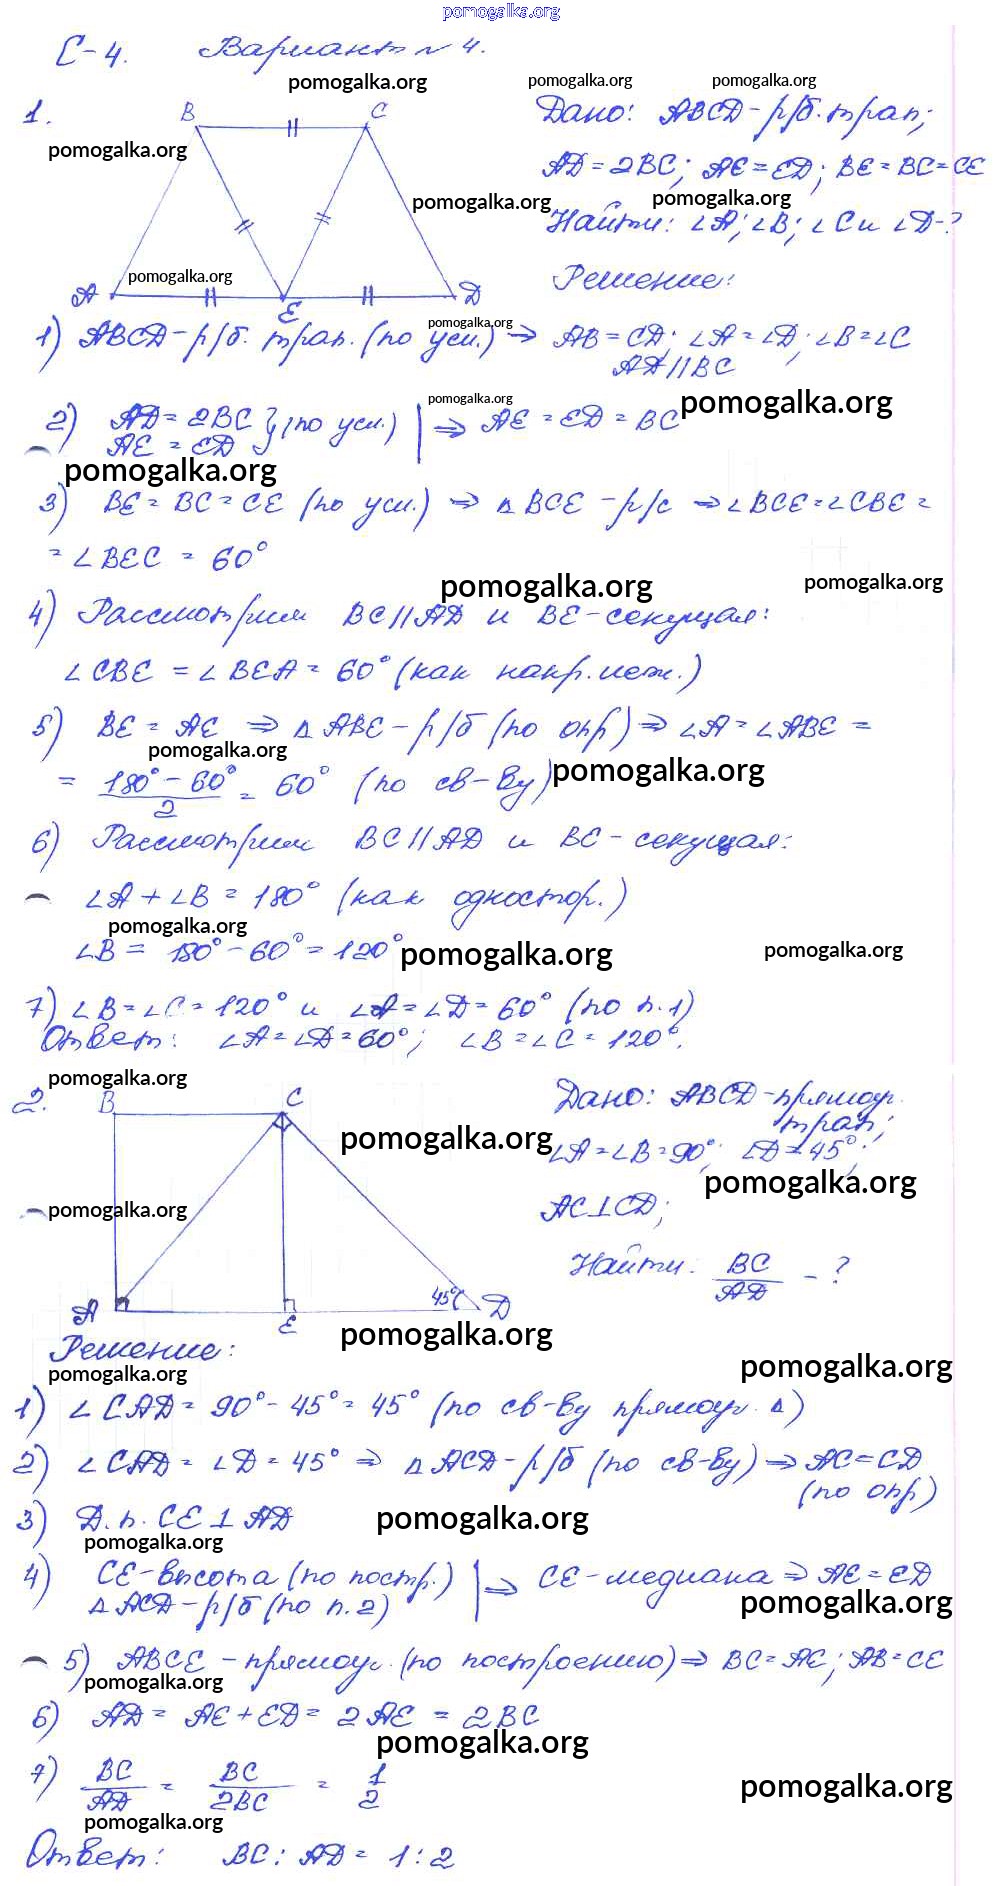 pomogalka.org
С-4. Вариант № 4.
pomogalka.org pomogalka.org pomogalka.org
1.
B C
Дано: ABCD-р/б. трап;
pomogalka.org
AD=2BC; AE=ED; BE=BC=CE
pomogalka.org pomogalka.org
Найти: ∠A; ∠B; ∠C и ∠D-?
pomogalka.org
Решение:
A E D
pomogalka.org
1) ABCD-р/б. трап. (по усл.) ⇒ AB=CD; ∠A=∠D; ∠B=∠C
AD||BC
pomogalka.org pomogalka.org
2) AD=2BC } (по усл.) | ⇒ AE=ED=BC
AE=ED
pomogalka.org
3) BE=BC=CE (по усл.) ⇒ △BCE-р/с ⇒ ∠BCE=∠CBE=
=∠BEC=60°
pomogalka.org pomogalka.org
4) Рассмотрим BC||AD и BE-секущая:
∠CBE=∠BEA=60° (как накр. леж.)
5) BE=AE ⇒ △ABE-р/б (по опр) ⇒ ∠A=∠ABE=
pomogalka.org pomogalka.org
= (180°-60°)/2 = 60° (по св-ву)
6) Рассмотрим BC||AD и BE-секущая:
∠A+∠B=180° (как одностор.)
pomogalka.org
∠B=180°-60°=120°
pomogalka.org pomogalka.org
7) ∠B=∠C=120° и ∠A=∠D=60° (по п.1)
Ответ: ∠A=∠D=60°; ∠B=∠C=120°.
pomogalka.org
2.
B C
Дано: ABCD-прямоуг.
трап;
pomogalka.org
∠A=∠B=90°; ∠D=45°;
pomogalka.org
AC⊥CD;
pomogalka.org
Найти: BC/AD - ?
45°
A E D
pomogalka.org
Решение:
pomogalka.org pomogalka.org
1) ∠CAD=90°-45°=45° (по св-ву прямоуг. △)
2) ∠CAD=∠D=45° ⇒ △ACD-р/б (по св-ву) ⇒ AC=CD
(по опр)
3) Д.п. CE⊥AD
pomogalka.org
pomogalka.org
4) CE-высота (по постр.) | ⇒ CE-медиана ⇒ AE=ED
△ACD-р/б (по п.2)
pomogalka.org
5) ABCE-прямоуг. (по построению) ⇒ BC=AE; AB=CE
pomogalka.org
6) AD=AE+ED=2AE=2BC
pomogalka.org
7) BC/AD = BC/2BC = 1/2
pomogalka.org
pomogalka.org
Ответ: BC:AD=1:2